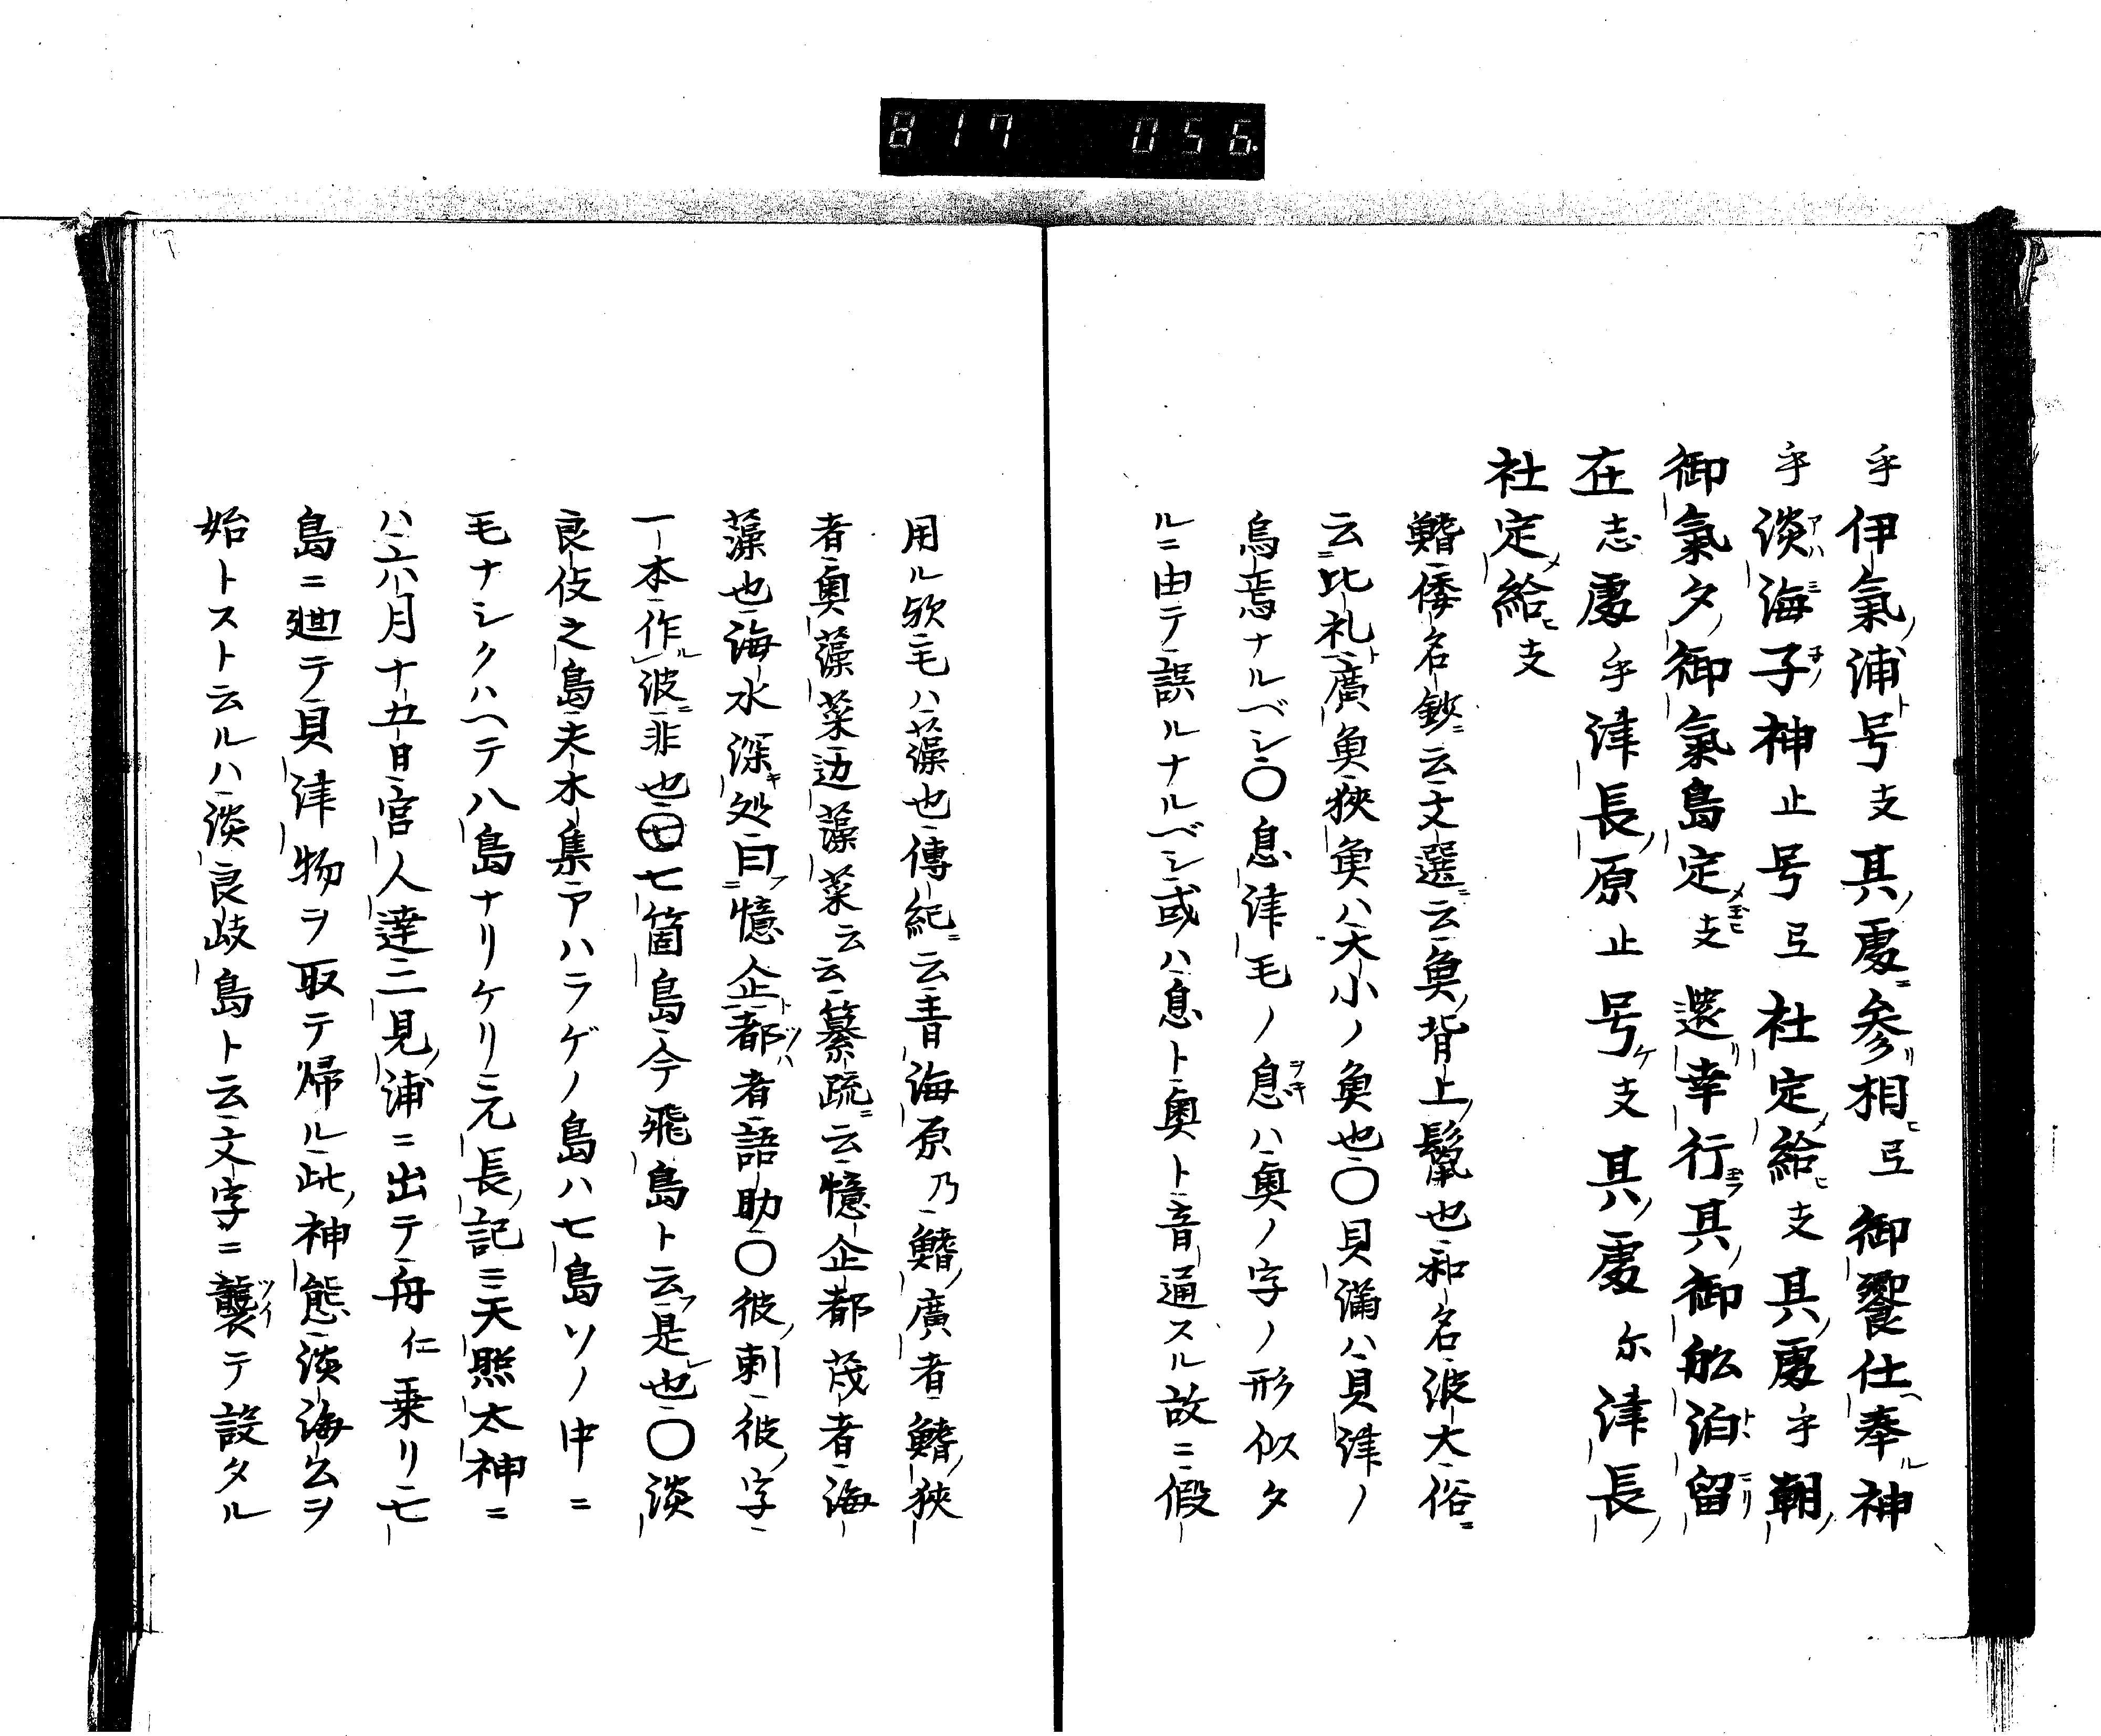 817 056
乎伊氣ノ浦ト号支其ノ處ニ参リ相ヒ弖御饗仕ヘ奉ル神
乎淡海子ノ神止号弖社定メ給ヒ支其ノ處乎朝ノ
御氣夕ノ御氣島定メ玉ヒ支還リ幸行玉フ其ノ御舩泊トヽ留ニリ
在志處乎津長ノ原止号ケ支其ノ處尓津長ノ
社定メ給ヒ支
鰭倭名鈔ニ云文選ニ云魚ノ背上ノ鬣也和名波太俗ニ
云ニ比礼ト廣魚狹魚ハ大小ノ魚也〇貝滿ハ貝津ノ
烏焉ナルベシ〇息津毛ノ息ハ奥ノ字ノ形似タ
ルニ由テ誤ルナルベシ或ハ息ト奥ト音通スル故ニ假
用ル欤毛ハ藻也傳紀ニ云青海原乃鰭ノ廣者鰭ノ狹
者奥藻菜边藻菜云云纂疏ニ云憶企都茂者海
藻也海水深キ処曰フ憶企ト都ツハ者語助〇彼ノ刺彼ノ字
一本作ル波ニ非也㊆七箇島今飛島ト云フ是レ也〇淡
良伎之島夫木集アハラゲノ島ハ七島ソノ中ニ
モナシクハヘテ八島ナリケリ元長ノ記ニ天照太神ニ
ハ六月十五日官人達二見ノ浦ニ出テ舟仁乗リ七
島ニ廻テ貝津物ヲ取テ帰ル此ノ神態淡海公ヲ
始トスト云ルハ淡良歧島ト云文字ニ襲テ設タル